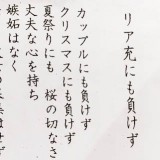 リア充にも負けず
カップルにも負けず
クリスマスにも負けず
夏祭りにも 桜の切なさ
丈夫な心を持ち
嫉妬はなく